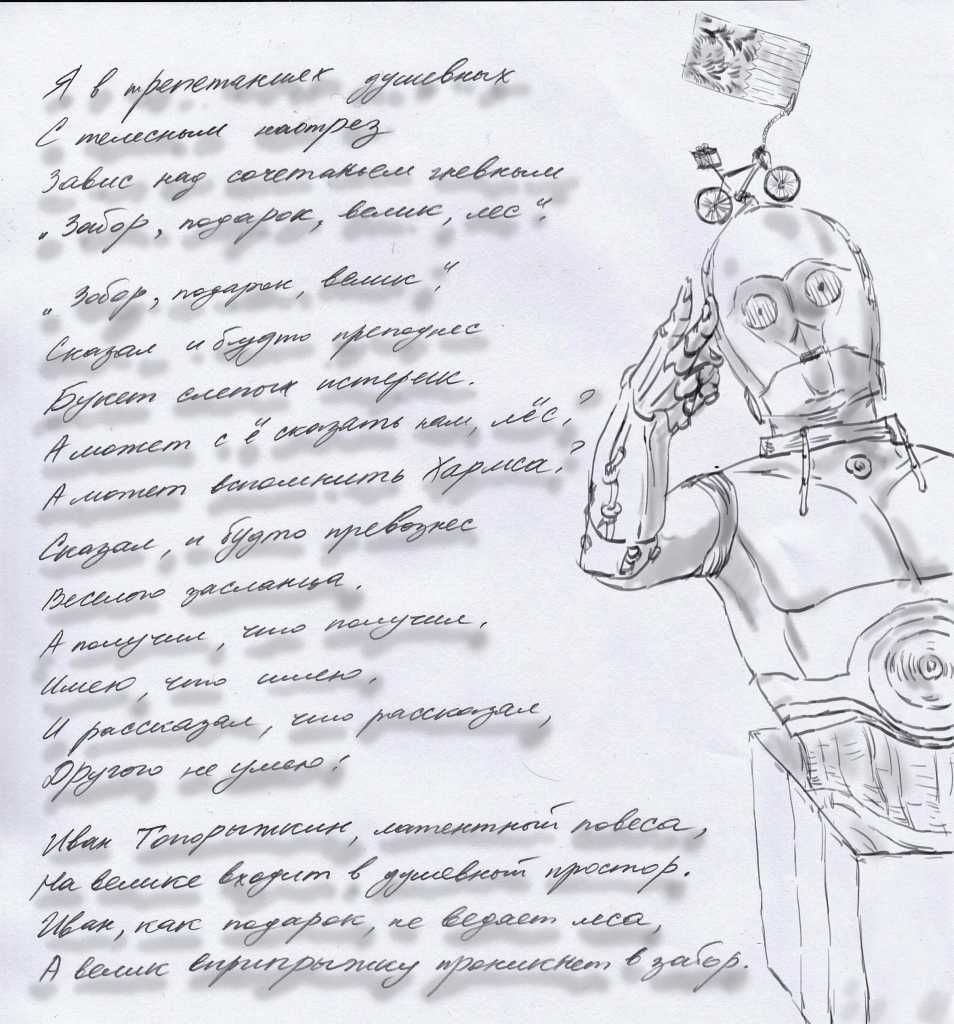 Я в трепетаниях душевных
С телесным наотрез
Завис над сочетаньем гневным
„Забор, подарок, велик, лес".
„Забор, подарок, велик".
Сказал и будто преподнес
Букет слепых истерик.
А может с „ё" сказать нам, лёс?
А может вспомнить Хармса?
Сказал, и будто превознес
Веселого засланца.
А получил, что получил,
Имею, что имею,
И рассказал, что рассказал,
Другого не умею!
Иван Топорыжкин, латентный повеса,
На велике входит в душевный простор.
Иван, как подарок, не ведает леса,
А велик вприпрыжку проникнет в забор.